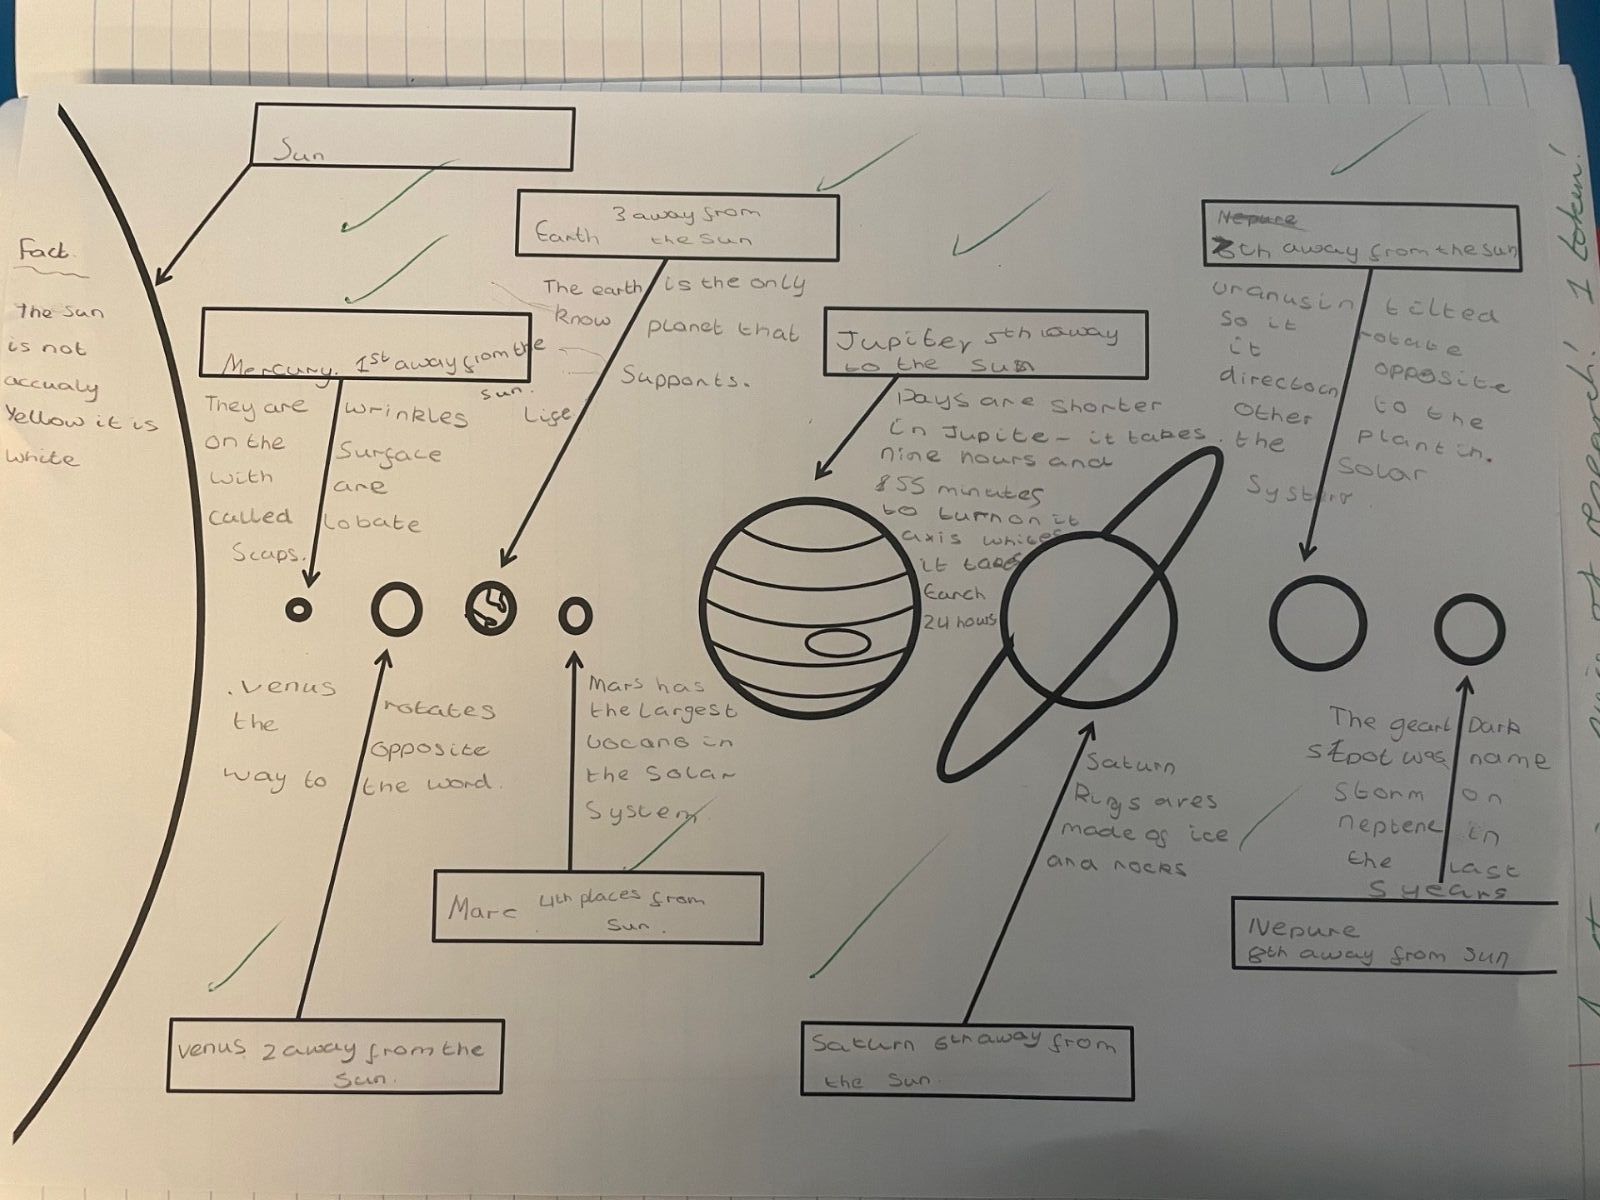 Sun
Fact.
The Sun
is not
accualy
Yellow it is
white
Mercury. 1st away from the
sun.
They are wrinkles
on the Surface
with are
called lobate
Scaps.
3 away from
Earth the Sun
The earth is the only
know planet that
Supports.
Life
Jupiter 5th away
to the Sun
Days are shorter
in Jupite- it takes
nine hours and
55 minutes
to turn on it
axis whites
it takes
Earth
24 hours
Nepure
8th away from the sun
uranus in tilted
So it rotate
it opposite
direction to the
Other plant in.
the Solar
System
.venus rotates
the opposite
way to the word.
Mars has
the Largest
vocano in
the Solar
System
Marc 4th places from
Sun.
venus 2 away from the
Sun.
Saturn
Rings ares
made of ice
and rocks
Saturn 6th away from
the Sun.
The geart Dark
Spot was name
Storm on
neptene in
the Last
5 years
Nepure
8th away from Sun
1 token!
of research!